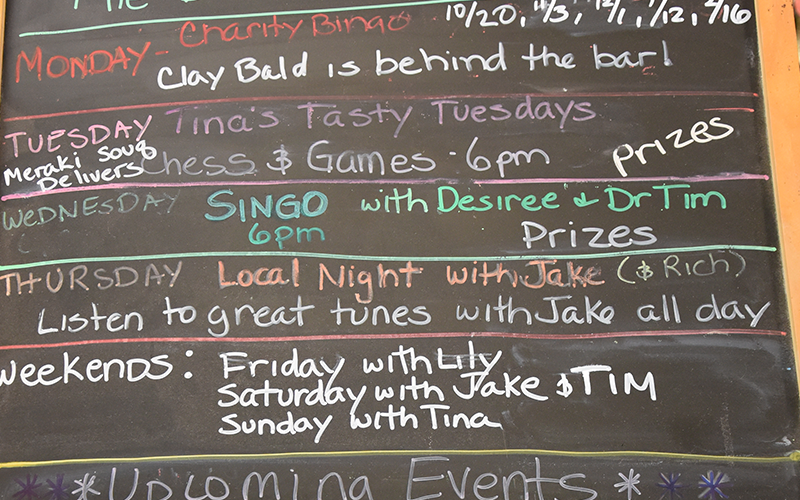 The
Monday - Charity Bingo 10/20, 11/3, 12/1, 1/12, 2/16
Clay Bald is behind the bar!
Tuesday Tina's Tasty Tuesdays
Meraki Soug Delivers Chess & Games - 6pm Prizes
Wednesday SINGO with Desiree & Dr Tim
6pm Prizes
Thursday Local Night with Jake (& Rich)
Listen to great tunes with Jake all day
Weekends: Friday with Lily
Saturday with Jake & TIM
Sunday with Tina
***Upcoming Events * * *